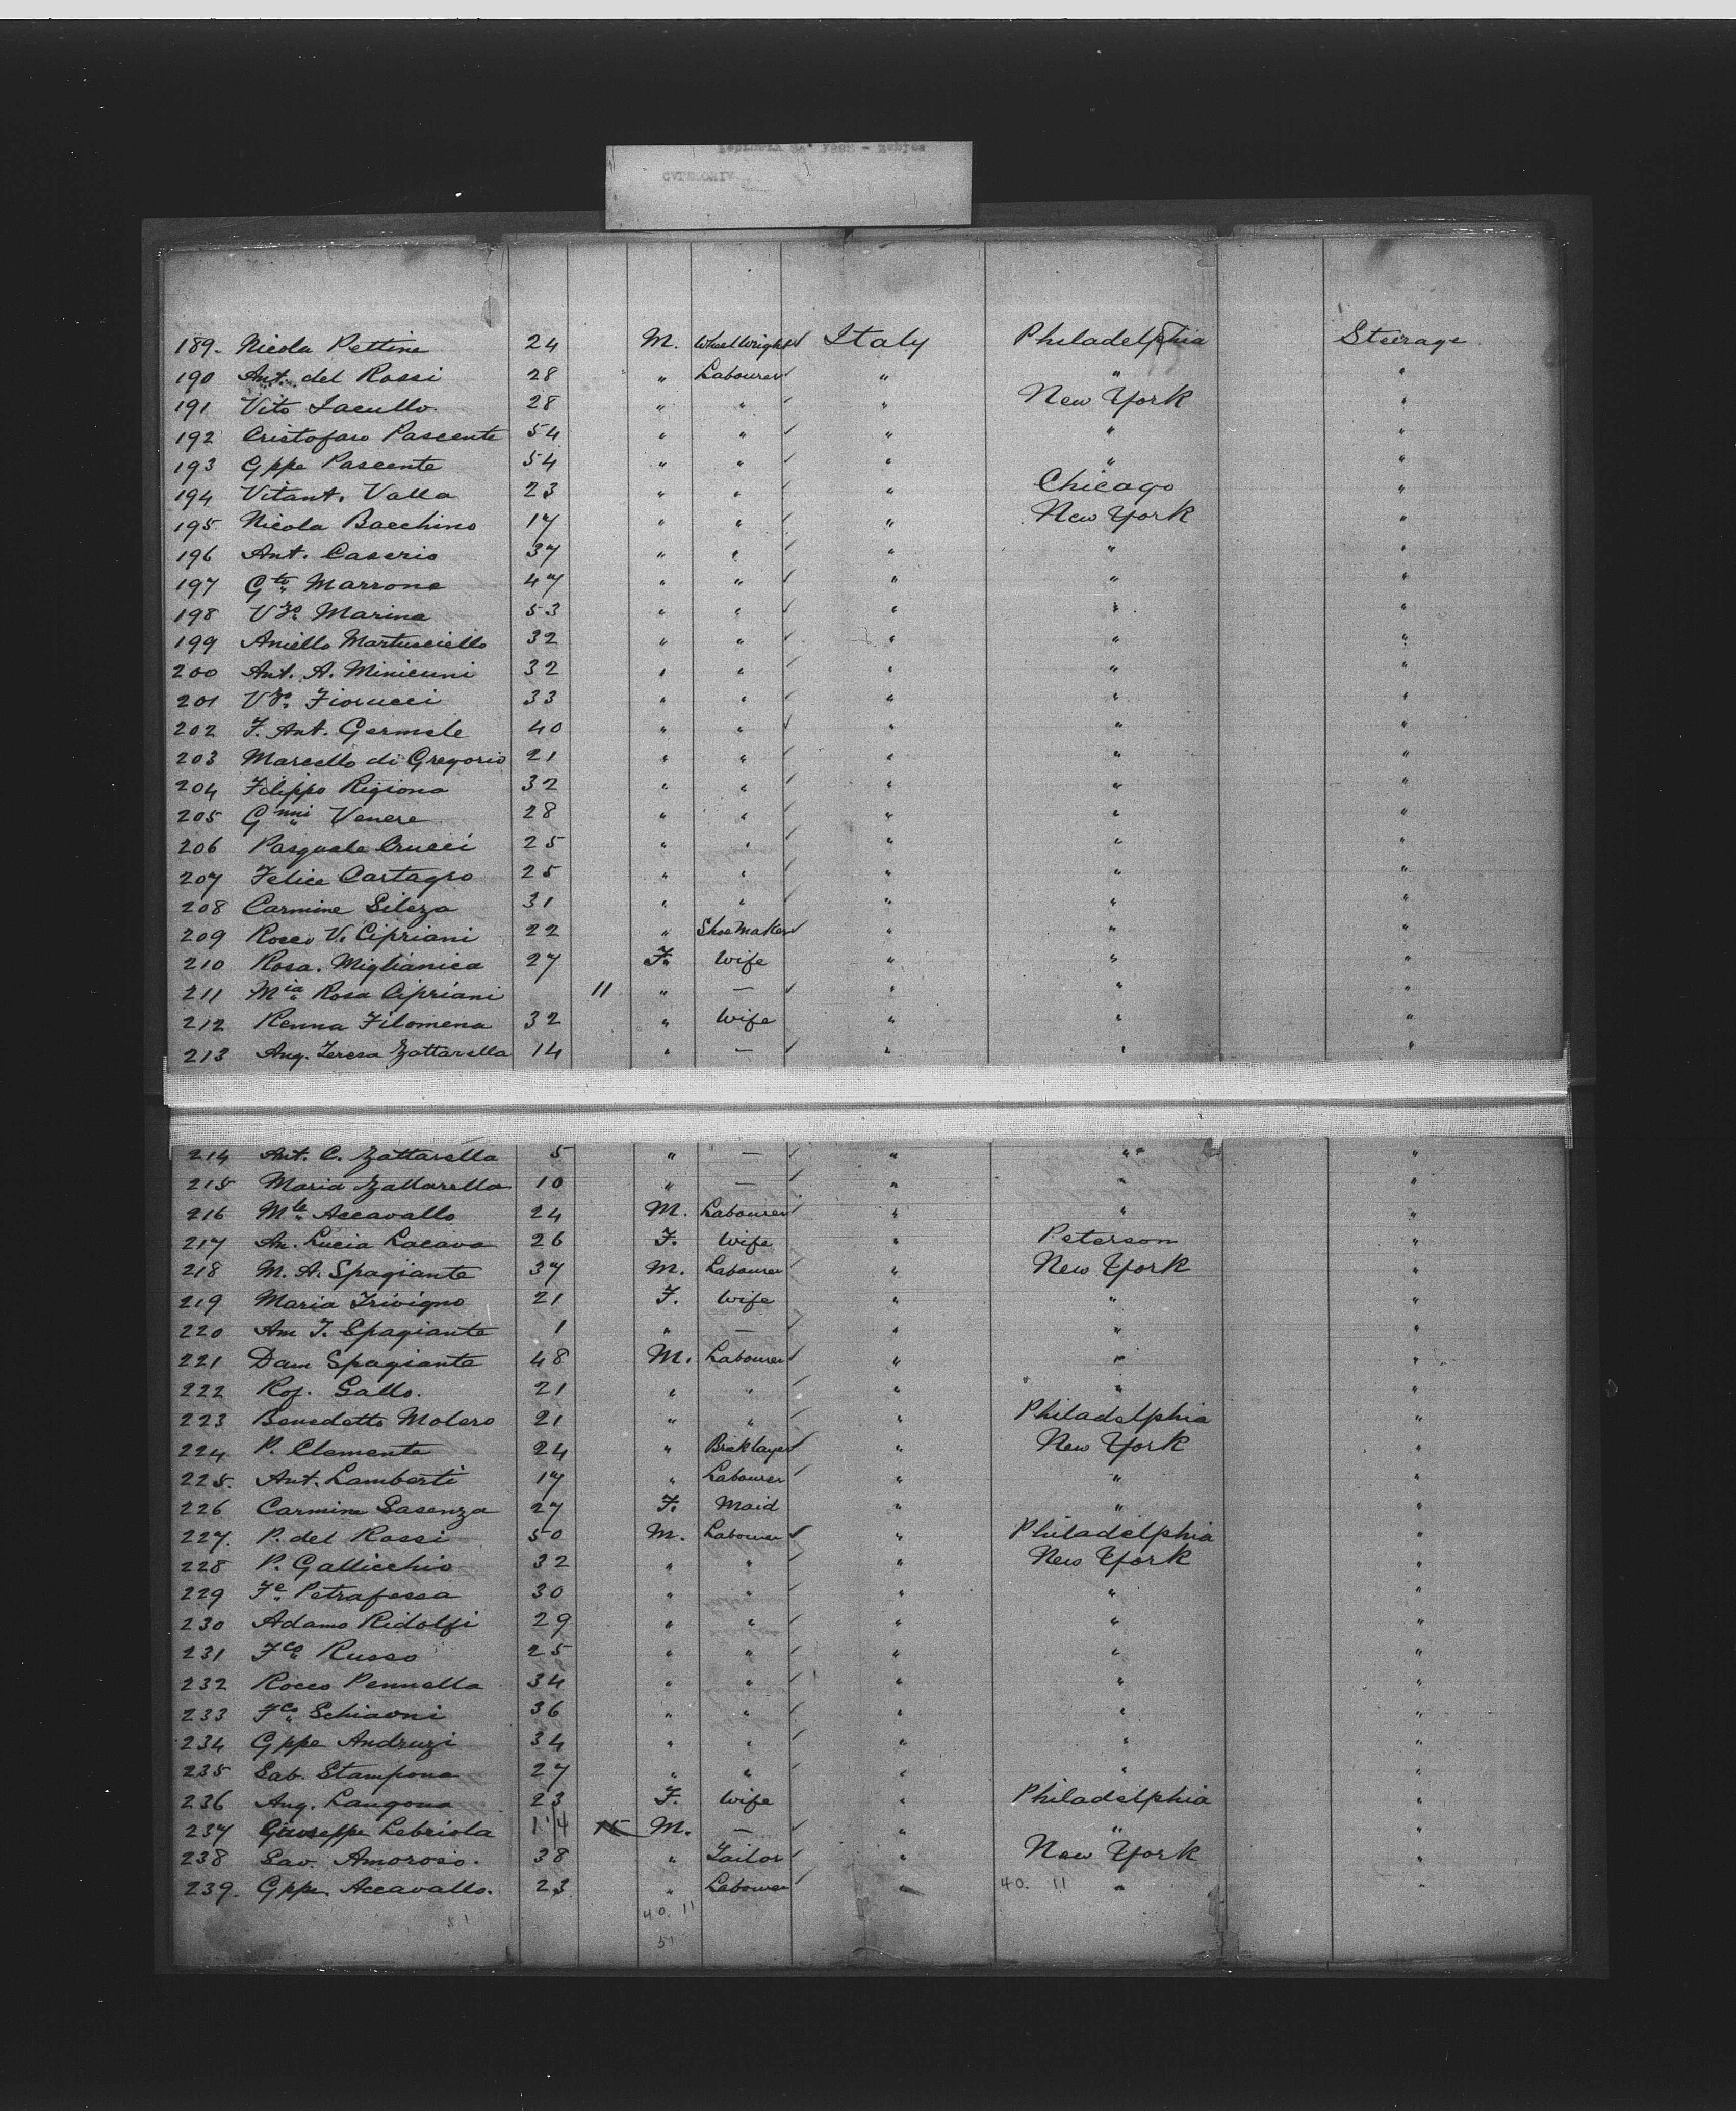 189. Nicola Pettine 24 M. Wheelwright Italy Philadelphia Steerage
190 Ant. del Rossi 28 " Labourer " " "
191 Vito Iacullo. 28 " " " New York "
192 Cristofaro Pascente 54 " " " " "
193 Gppe Pascente 54 " " " " "
194 Vitant. Valla 23 " " " Chicago "
195 Nicola Bacchino 17 " " " New York "
196 Ant. Caserio 37 " " " " "
197 Gte Marrone 47 " " " " "
198 Vzo Marina 53 " " " " "
199 Aniello Martusciello 32 " " " " "
200 Ant. A. Minicuni 32 " " " " "
201 Vzo Fiorucci 33 " " " " "
202 F. Ant. Germele 40 " " " " "
203 Marcello di Gregorio 21 " " " " "
204 Filippo Rigiona 32 " " " " "
205 Gnni Venere 28 " " " " "
206 Pasquale Crucci 25 " " " " "
207 Felice Cartagro 25 " " " " "
208 Carmine Sileza 31 " " " " "
209 Rocco V. Cipriani 22 " Shoe Maker " " "
210 Rosa. Miglianica 27 F. Wife " " "
211 Mia Rosa Cipriani 11 " — " " "
212 Renna Filomena 32 " Wife " " "
213 Ang. Teresa Zattarella 14 " — " " "
214 Ant. C. Zattarella 5 " — " " "
215 Maria Zattarella 10 " — " " "
216 Mle Accavallo 24 M. Labourer " " "
217 An. Lucia Lacava 26 F. Wife " Peterson "
218 M. A. Spagiante 37 M. Labourer " New York "
219 Maria Trivigno 21 F. Wife " " "
220 Am T. Spagiante 1 " — " " "
221 Dam Spagiante 48 M. Labourer " " "
222 Rof. Gallo. 21 " " " " "
223 Benedetto Molero 21 " " " Philadelphia "
224 P. Clemente 24 " Bricklayer " New York "
225. Ant. Lamberti 17 " Labourer " " "
226 Carmine Sasenza 27 F. Maid " " "
227. P. del Rossi 50 M. Labourer " Philadelphia "
228 P. Gallicchio 32 " " " New York "
229 Fe Petrafessa 30 " " " " "
230 Adamo Ridolfi 29 " " " " "
231 Fco Russo 25 " " " " "
232 Rocco Pennella 34 " " " " "
233 Fco Schiavni 36 " " " " "
234 Gppe Andruzi 34 " " " " "
235 Sab. Stampona 27 " " " " "
236 Ang. Langona 23 F. Wife " Philadelphia "
237 Giuseppe Lebriola 14 M. — " " "
238 Sav. Amoroso. 38 " Tailor " New York "
239. Gppe. Accavallo. 23 " Labourer " 40. 11 " "
40. 11
51